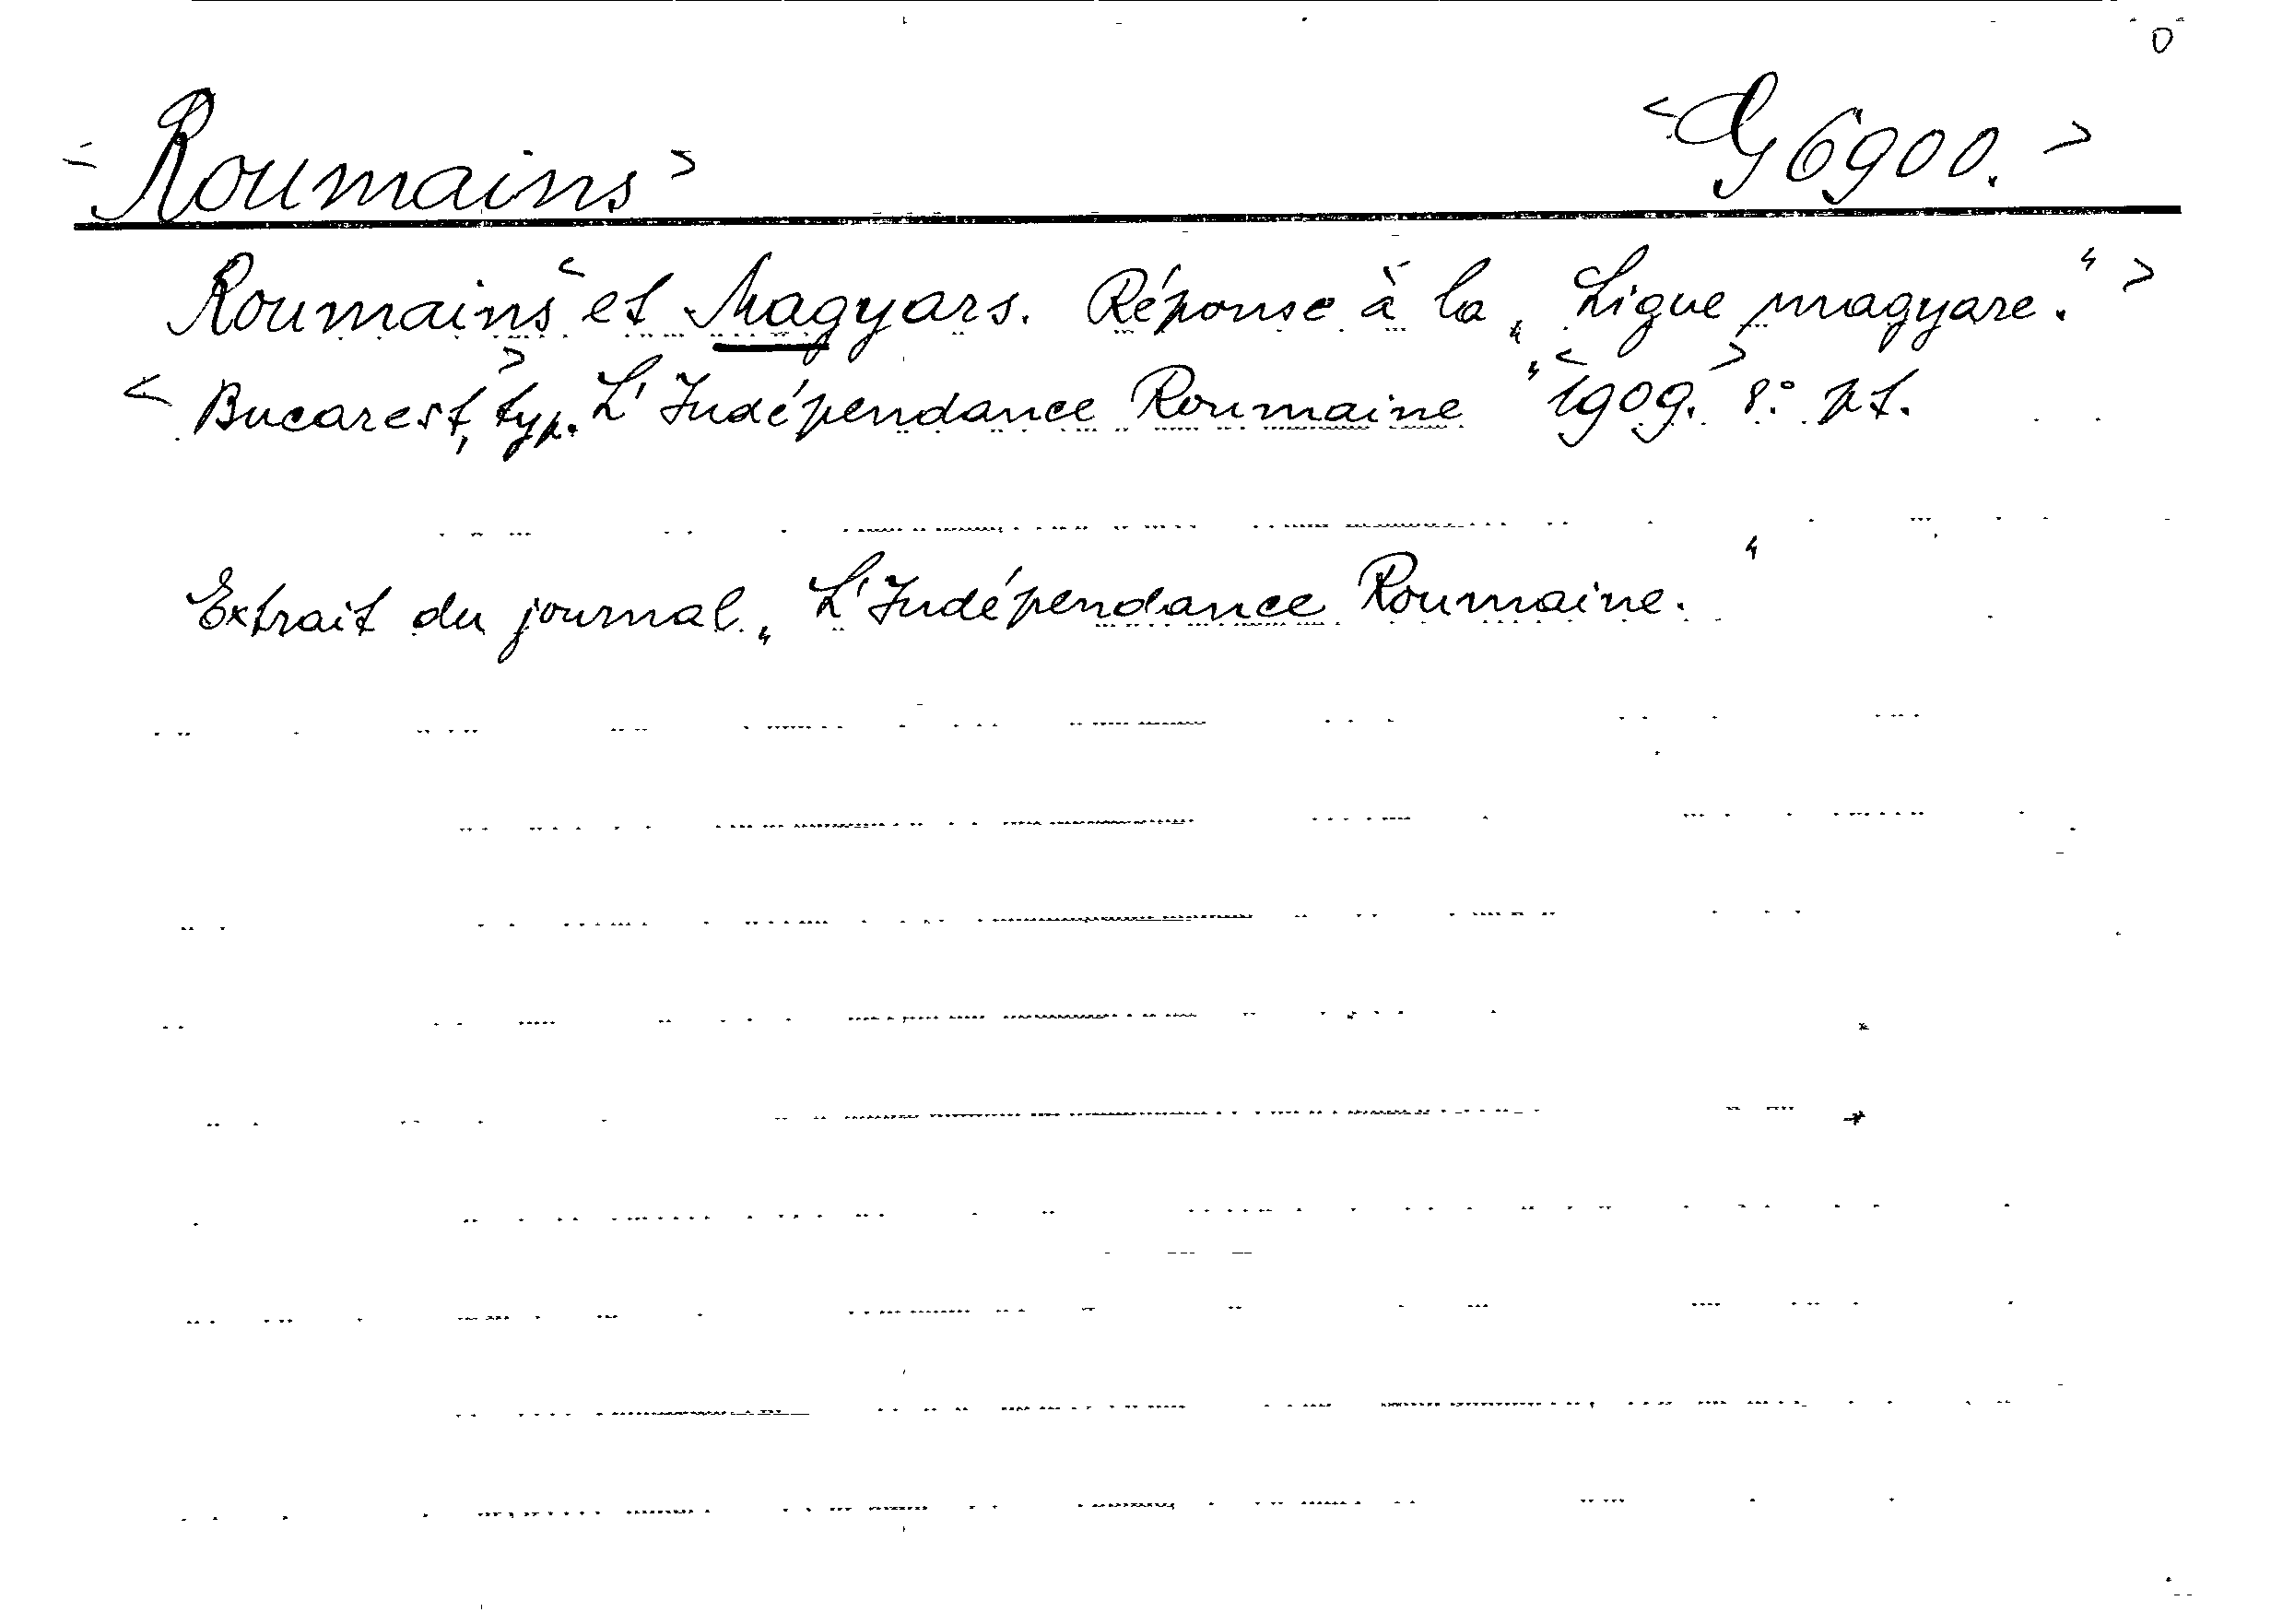 <Roumains> <G 6900.>
Roumains <et Magyars. Réponse à la „Ligue magyare.“>
<Bucarest,> typ. L'Indépendance Roumaine“ <1909.> 8.° pt.
Extrait du journal „L'Indépendance Roumaine.“